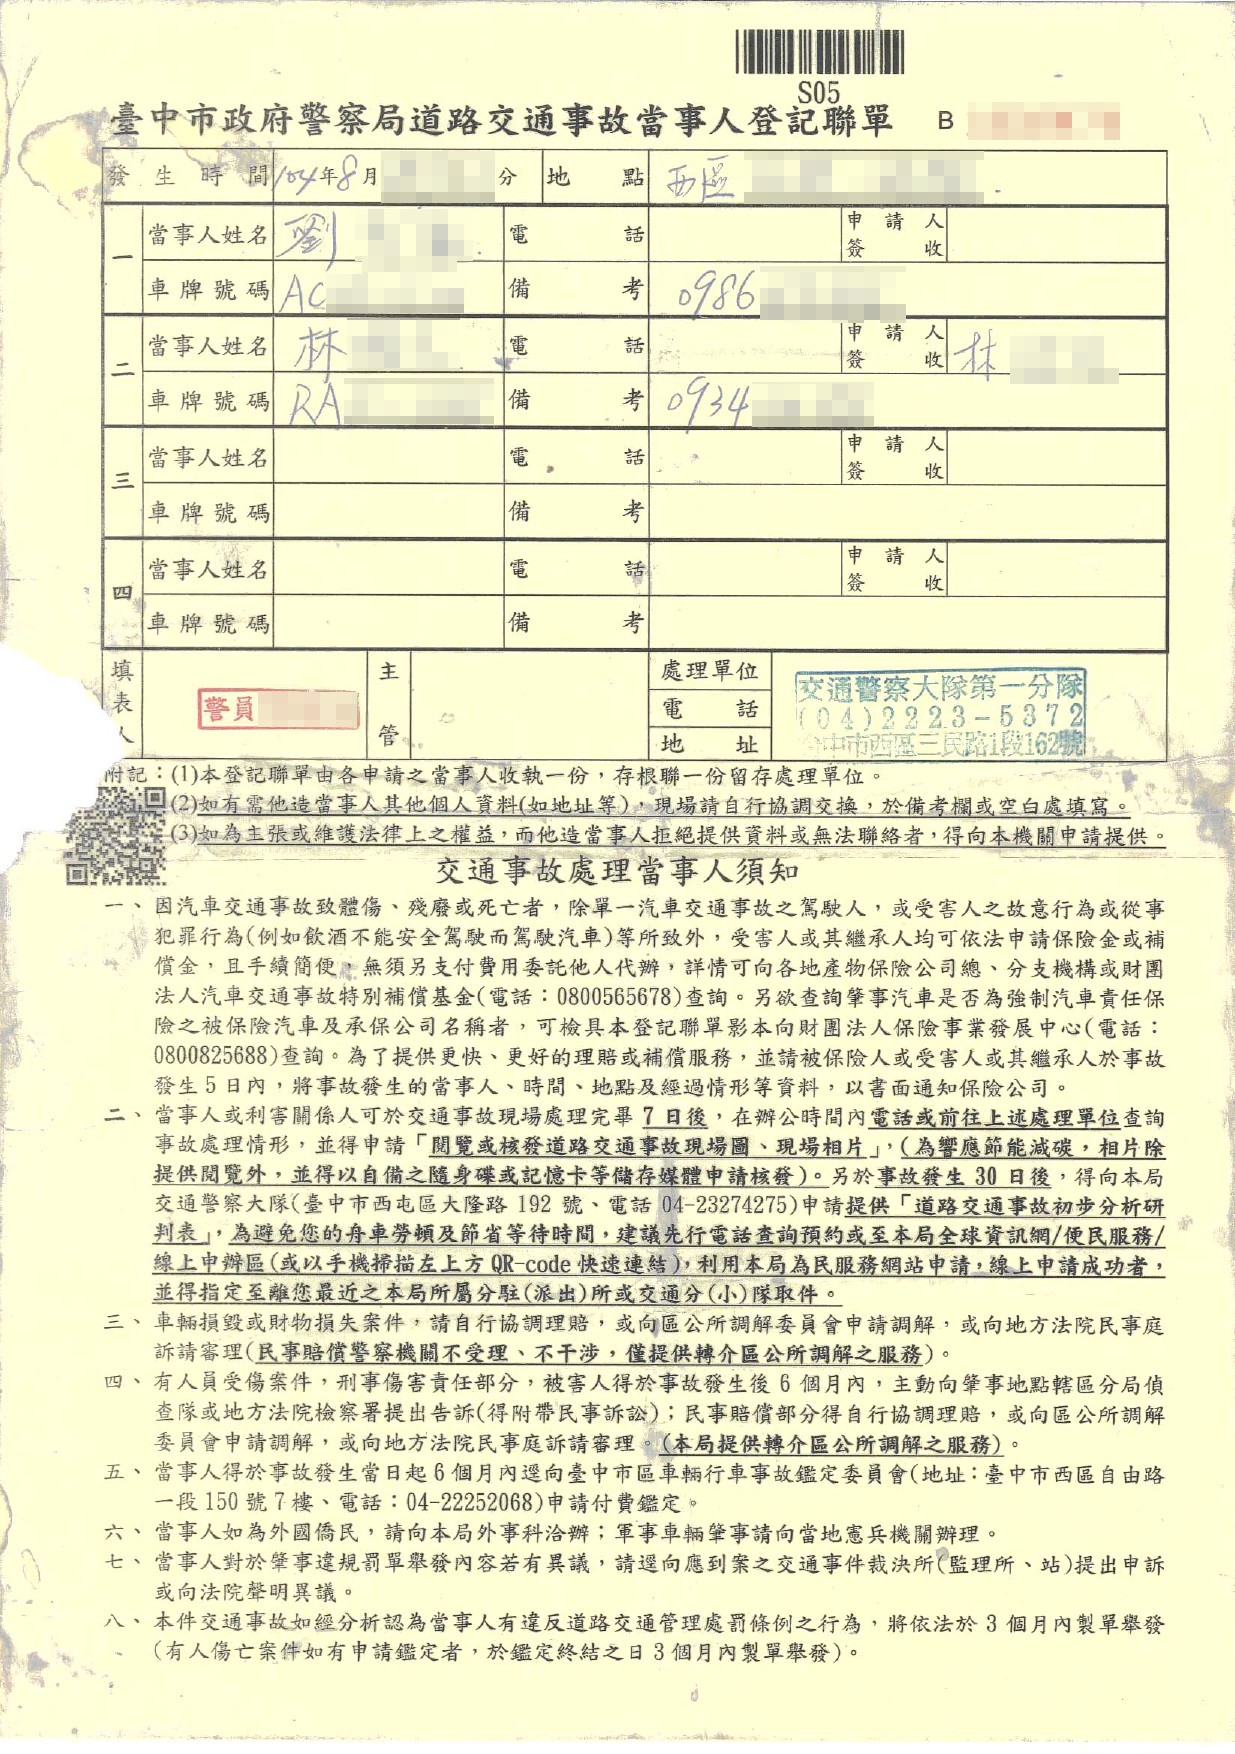 S05
臺中市政府警察局道路交通事故當事人登記聯單 B
發生時間 104年8月 分 地點 西區
一 當事人姓名 劉 電話 申請人簽收
車牌號碼 AC 備考 0986
二 當事人姓名 林 電話 申請人簽收 林
車牌號碼 RA 備考 0934
三 當事人姓名 電話 申請人簽收
車牌號碼 備考
四 當事人姓名 電話 申請人簽收
車牌號碼 備考
填表人 警員 主管 處理單位 交通警察大隊第一分隊
電話 (04)2223-5372
地址 台中市西區三民路1段162號
附記：(1)本登記聯單由各申請之當事人收執一份，存根聯一份留存處理單位。
(2)如有需他造當事人其他個人資料(如地址等)，現場請自行協調交換，於備考欄或空白處填寫。
(3)如為主張或維護法律上之權益，而他造當事人拒絕提供資料或無法聯絡者，得向本機關申請提供。
交通事故處理當事人須知
一、因汽車交通事故致體傷、殘廢或死亡者，除單一汽車交通事故之駕駛人，或受害人之故意行為或從事
犯罪行為(例如飲酒不能安全駕駛而駕駛汽車)等所致外，受害人或其繼承人均可依法申請保險金或補
償金，且手續簡便，無須另支付費用委託他人代辦，詳情可向各地產物保險公司總、分支機構或財團
法人汽車交通事故特別補償基金(電話：0800565678)查詢。另欲查詢肇事汽車是否為強制汽車責任保
險之被保險汽車及承保公司名稱者，可檢具本登記聯單影本向財團法人保險事業發展中心(電話：
0800825688)查詢。為了提供更快、更好的理賠或補償服務，並請被保險人或受害人或其繼承人於事故
發生5日內，將事故發生的當事人、時間、地點及經過情形等資料，以書面通知保險公司。
二、當事人或利害關係人可於交通事故現場處理完畢7日後，在辦公時間內電話或前往上述處理單位查詢
事故處理情形，並得申請「閱覽或核發道路交通事故現場圖、現場相片」，(為響應節能減碳，相片除
提供閱覽外，並得以自備之隨身碟或記憶卡等儲存媒體申請核發)。另於事故發生30日後，得向本局
交通警察大隊(臺中市西屯區大隆路192號、電話04-23274275)申請提供「道路交通事故初步分析研
判表」，為避免您的舟車勞頓及節省等待時間，建議先行電話查詢預約或至本局全球資訊網/便民服務/
線上申辦區(或以手機掃描左上方QR-code快速連結)，利用本局為民服務網站申請，線上申請成功者，
並得指定至離您最近之本局所屬分駐(派出)所或交通分(小)隊取件。
三、車輛損毀或財物損失案件，請自行協調理賠，或向區公所調解委員會申請調解，或向地方法院民事庭
訴請審理(民事賠償警察機關不受理、不干涉，僅提供轉介區公所調解之服務)。
四、有人員受傷案件，刑事傷害責任部分，被害人得於事故發生後6個月內，主動向肇事地點轄區分局偵
查隊或地方法院檢察署提出告訴(得附帶民事訴訟)；民事賠償部分得自行協調理賠，或向區公所調解
委員會申請調解，或向地方法院民事庭訴請審理。(本局提供轉介區公所調解之服務)。
五、當事人得於事故發生當日起6個月內逕向臺中市區車輛行車事故鑑定委員會(地址：臺中市西區自由路
一段150號7樓、電話：04-22252068)申請付費鑑定。
六、當事人如為外國僑民，請向本局外事科洽辦；軍事車輛肇事請向當地憲兵機關辦理。
七、當事人對於肇事違規罰單舉發內容若有異議，請逕向應到案之交通事件裁決所(監理所、站)提出申訴
或向法院聲明異議。
八、本件交通事故如經分析認為當事人有違反道路交通管理處罰條例之行為，將依法於3個月內製單舉發
(有人傷亡案件如有申請鑑定者，於鑑定終結之日3個月內製單舉發)。